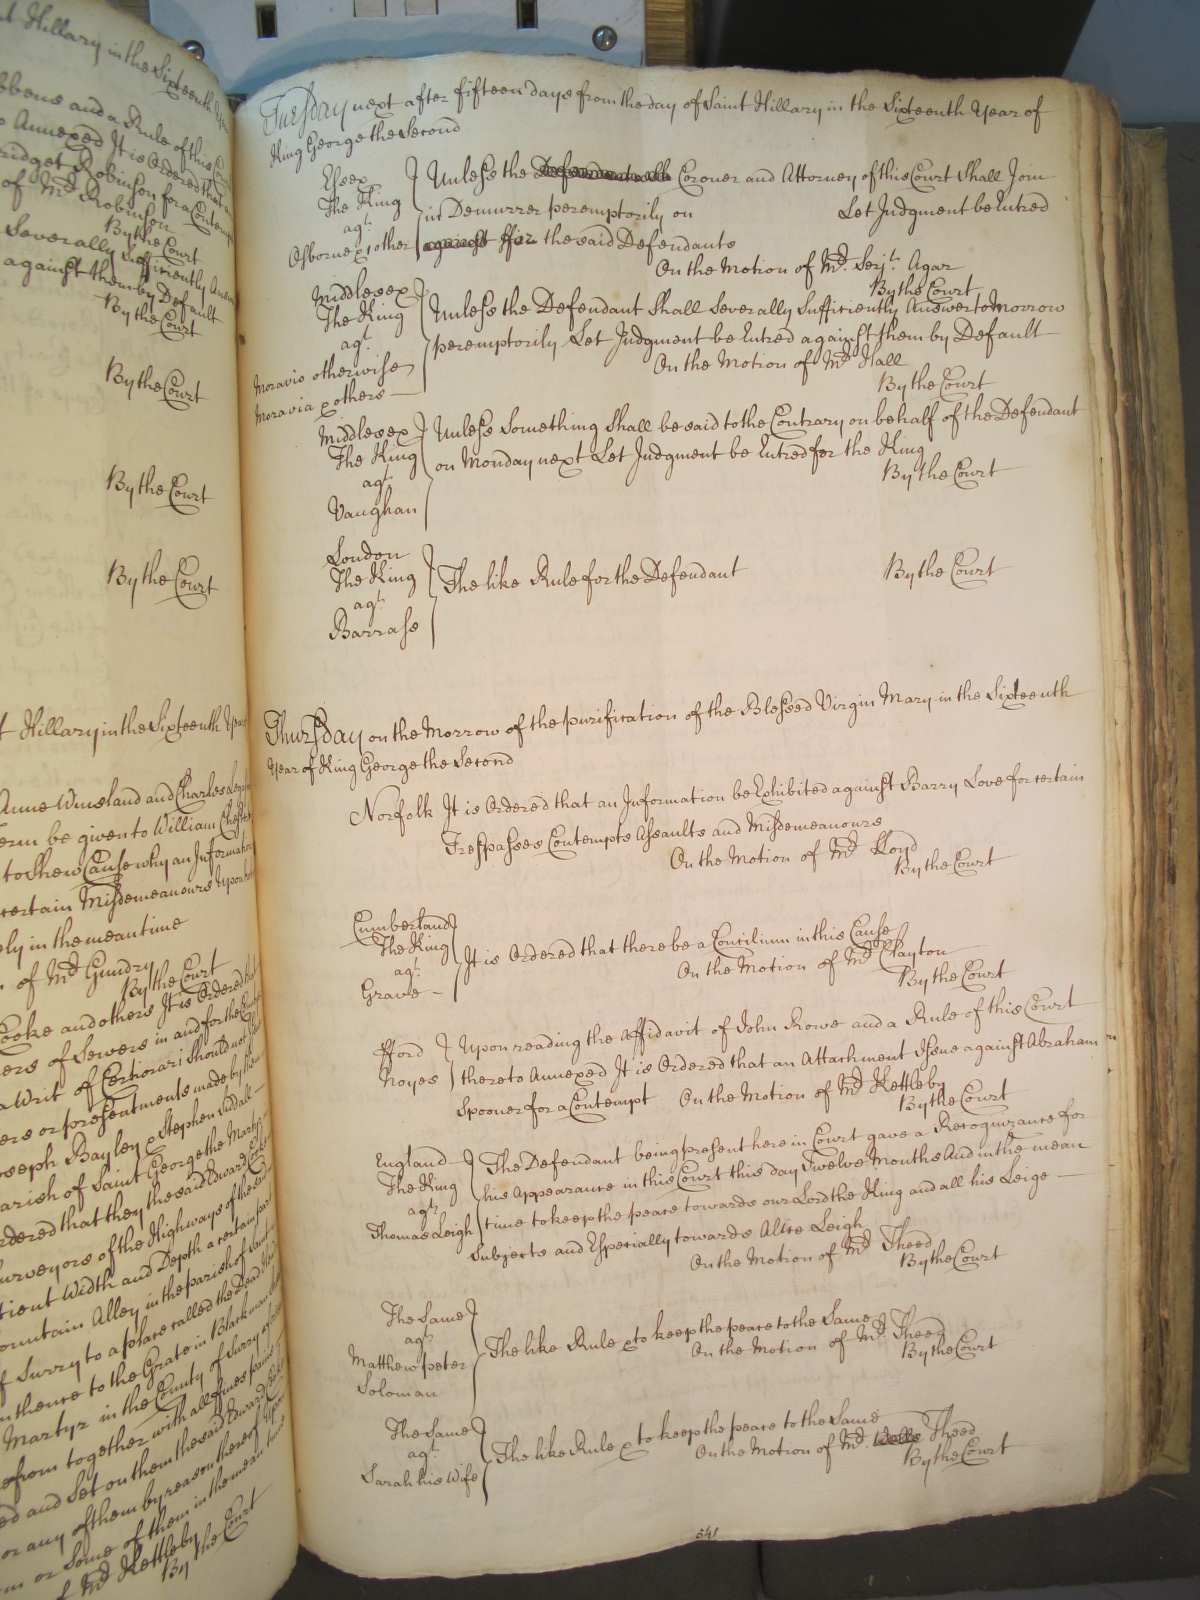 t Hillary in the Sixteenth
bbens and a Rule of this Court
Annexed It is Ordered that
ridget Robinson for a Contempt
of Mr. Robinson
By the Court
Severally Sufficiently Answer
against them by Default
By the Court
By the Court
By the Court
By the Court
t Hillary in the Sixteenth Year
Anne Winsland and Charles
Term be given to William
to Shew Cause why an Information
certain Misdemeanours upon
ly in the mean time
of Mr. Gundry
By the Court
Cooke and others It is Ordered that
ers of Sewers in and for the
a Writ of Cerhorari Should not
ers or presentments made by them
Joseph Bayley & Stephen Siddall
parish of Saint George the Martyr
rdered that they the said Edward Cooke
Surveyors of the Highways of the said
cient Width and Depth a certain
ountain Alley in the parish of Saint
f Surry to a place called the Dead
thence to the Grate in Blackman
Martyr in the County of Surry
efrom together with all fines pains
ed and Set on them the said Edward
or any of them by reason thereof Upon
em or Some of them in the mean time
f Mr. Kettleby
By the Court
Tuesday next after fifteen days from the day of Saint Hillary in the Sixteenth Year of
King George the Second
Essex
The King
agt.
Osborne & other
Unless the Coroner and Attorney of this Court Shall Join
in Demurrer peremptorily on Let Judgment be Entred
against ffor the said Defendants
On the Motion of Mr. Serjt. Agar
By the Court
Middlesex
The King
agt.
Moravio otherwise
Moravia & others
Unless the Defendant Shall Severally Sufficiently Answer to Morrow
peremptorily Let Judgment be Entred against them by Default
On the Motion of Mr. Hall
By the Court
Middlesex
The King
agt.
Vaughan
Unless Something Shall be said to the Contrary on behalf of the Defendant
on Monday next Let Judgment be Entred for the King
By the Court
London
The King
agt.
Barrass
The like Rule for the Defendant
By the Court
Thursday on the Morrow of the purification of the Blessed Virgin Mary in the Sixteenth
Year of King George the Second
Norfolk It is Ordered that an Information be Exhibited against Barry Love for certain
Trespasses Contempts Assaults and Misdemeanours
On the Motion of Mr. Lloyd
By the Court
Cumberland
The King
agt.
Grave
It is Ordered that there be a Concilium in this Cause
On the Motion of Mr. Clayton
By the Court
fford
Noyes
Upon reading the Affidavit of John Rowe and a Rule of this Court
thereto Annexed It is Ordered that an Attachment Issue against Abraham
Spooner for a Contempt On the Motion of Mr. Kettleby
By the Court
England
The King
agt.
Thomas Leigh
The Defendant being present here in Court gave a Recognizance for
his Appearance in this Court this day Twelve Months And in the mean
time to keep the peace towards our Lord the King and all his Leige
Subjects and Especially towards Alice Leigh
On the Motion of Mr. Theed
By the Court
The Same
agt.
Matthew peter
Soloman
The like Rule & to keep the peace to the Same
On the Motion of Mr. Theed
By the Court
The Same
agt.
Sarah his Wife
The like Rule & to keep the peace to the Same
On the Motion of Mr. Wells Theed
By the Court
541